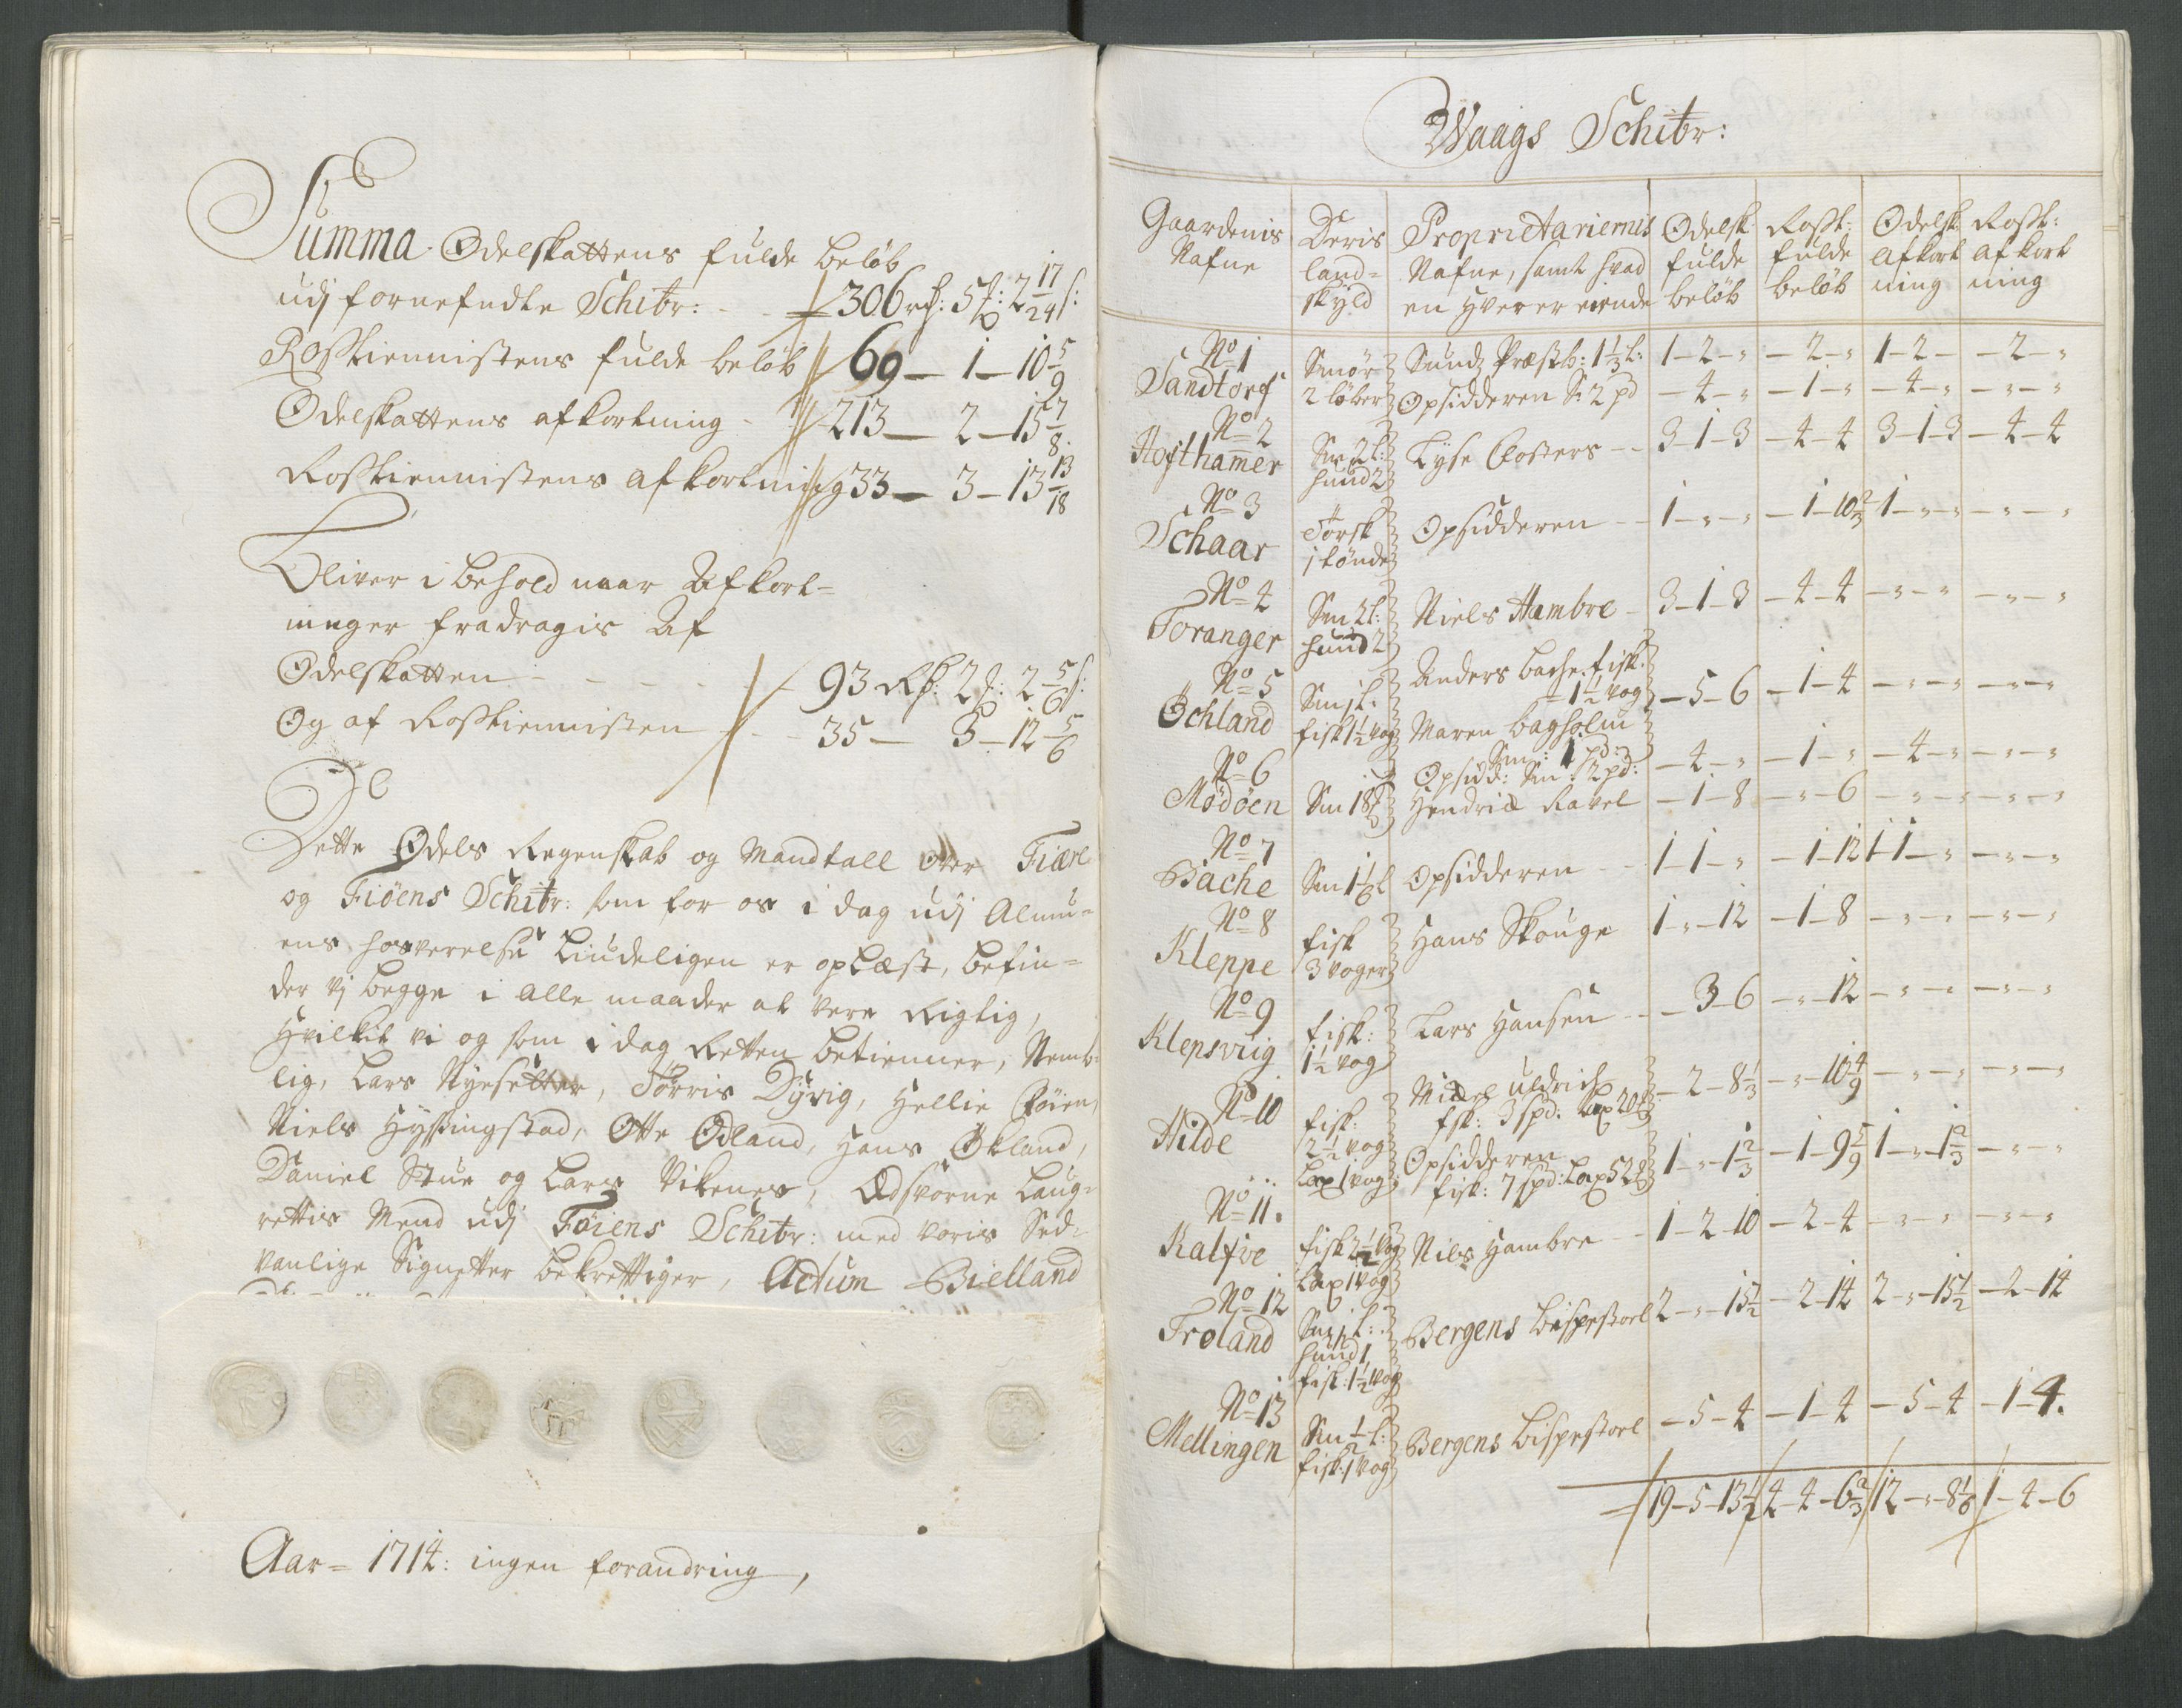 Summa Odelskattens fulde beløb
udj fornefndte Schibr: - - 306 rd: 5 : 2 17/24 s:
Rosstiennistens fulde beløb 69 – 1 – 10 5/9
Odelskattens afkortning - 213 – 2 – 15 7/8.
Rosstiennistens afkortning 33 – 3 – 13 13/18
Bliver i behold naar Afkort=
ninger fradragis Af
Odelskatten - - - - - 93 Rd: 2 : 2 5/6 s:
Og af Rosstiennisten - - 35 – 3 – 12 5/6
Dette Odels Regenskab og Mandtall over Fiære
og Fiöens Schibr: som for os i dag udj Almu=
ens hosverelse liudeligen er oplæst, befin=
der vj begge i alle maader at vere Rigtig,
Hvilket vi og som i dag Retten betienner, Nemb=
lig, Lars Nysetter, Tørris Dyvig, Hellie
Niels Hyssingstad, Otte Ødland, Hans Økland,
Daniel Stue og Lars Vikenes, Edsvorne Laug=
rettis Mend udj Föiens Schibr: med voris Sed=
vanlige Signetter bekreftiger, Actum Bielland
Aar = 1714: ingen forandring,
Waags Schibr:
Gaardenis Nafne | Deris land= skyld | Proprietariernis Nafne, samt hvad en hver er eiende | Odelsk: fulde beløb | Rosst: fulde beløb | Odelsk: afkort ning | Rosst: afkort ning
No 1 Sandtorf | Smör 2 löber | Sundz Præsteb: 1 1/3 l: | 1–2–" | –2–" | 1–2– | –2–"
Opsidderen S: 2 pd | –4–" | –1–" | –4–" | –"–"
No 2 Hofthamer | Sm 2 l: hund 2 | Lyse Closters - - | 3–1–3 | –4–4 | 3–1–3 | –4–4
No 3 Schaar | Torsk 1 tønde | Opsidderen - - | 1–"–" | –1–10 2/3 | 1–"–" | –"–"
No 4 Toranger | Sm 2 l: hund 2 | Niels Hambre - | 3–1–3 | –4–4 | –"–" | –"–"
No 5 Öchland | Sm 1 l. fisk 1 1/2 vog | Anders bache fisk: 1 1/2 vog
Maren bagholm Sm: 1 pd: | –5–6 | –1–4 | –"–" | –"–"
Opsidd: Sm: 2 pd: | –4–" | –1–" | –4–" | –"–"
No 6 Mödöen | Sm 18 | Hendrik Ravel | –1–8 | –"–6 | –"–" | –"–"
No 7 Bache | Sm 1 1/6 l | Opsidderen - - | 1–1–" | –1–12 | 1–1–" | –"–"
No 8 Kleppe | fisk 3 voger | Hans Skouge | 1–"–12 | –1–8 | –"–" | –"–"
No 9 Klepsvig | fisk: 1 1/2 vog | Lars Hansen - - | –3–6 | –"–12 | –"–" | –"–"
No 10 Hilde | fisk: 2 1/2 vog Lax 1 vog | Mickel Uldrich fisk: 3 spd: Lax 20 | –2–8 1/3 | –"–10 4/9 | –"–" | –"–"
Opsidderen fisk: 7 spd: Lax 52 | 1–"–1 2/3 | –1–9 5/9 | 1–"–1 2/3 | –"–"
No 11. Kalfve | fisk 2 1/2 vog Lax 1 vog | Nils Hambre - - | 1–2–10 | –2–4 | –"–" | –"–"
No 12 Fröland | Sm 1 l: hund 1 fisk: 1 1/2 vog | Bergens bispestoel | 2–"–15 1/2 | –2–14 | 2–"–15 1/2 | –2–14
No 13 Mellingen | Sm 1/2 l: fisk: 1 vog | Bergens bispestoel | –5–4 | –1–4 | –5–4 | –1–4.
19–5–13 1/2 | 4–4–6 2/3 | 12–"–8 1/6 | 1–4–6